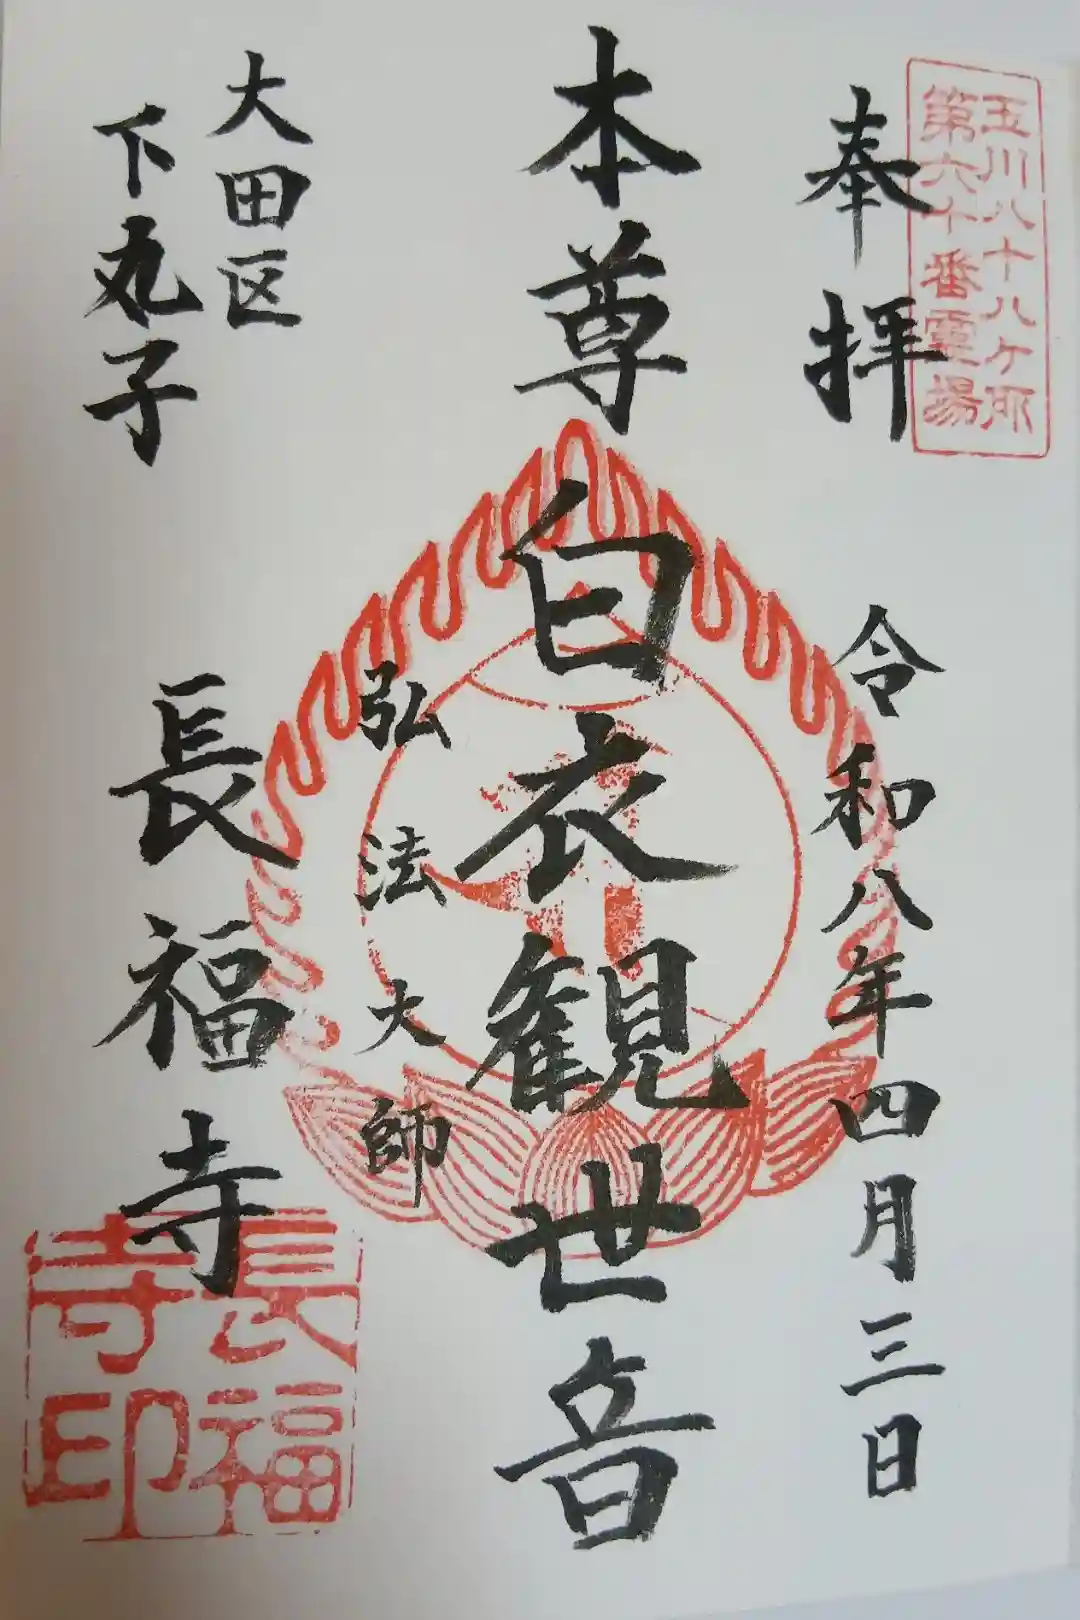 玉川八十八ケ所
第六十番霊場
奉拝
令和八年四月三日
本尊
白衣観世音
弘法大師
大田区
下丸子
長福寺
長福
寺印